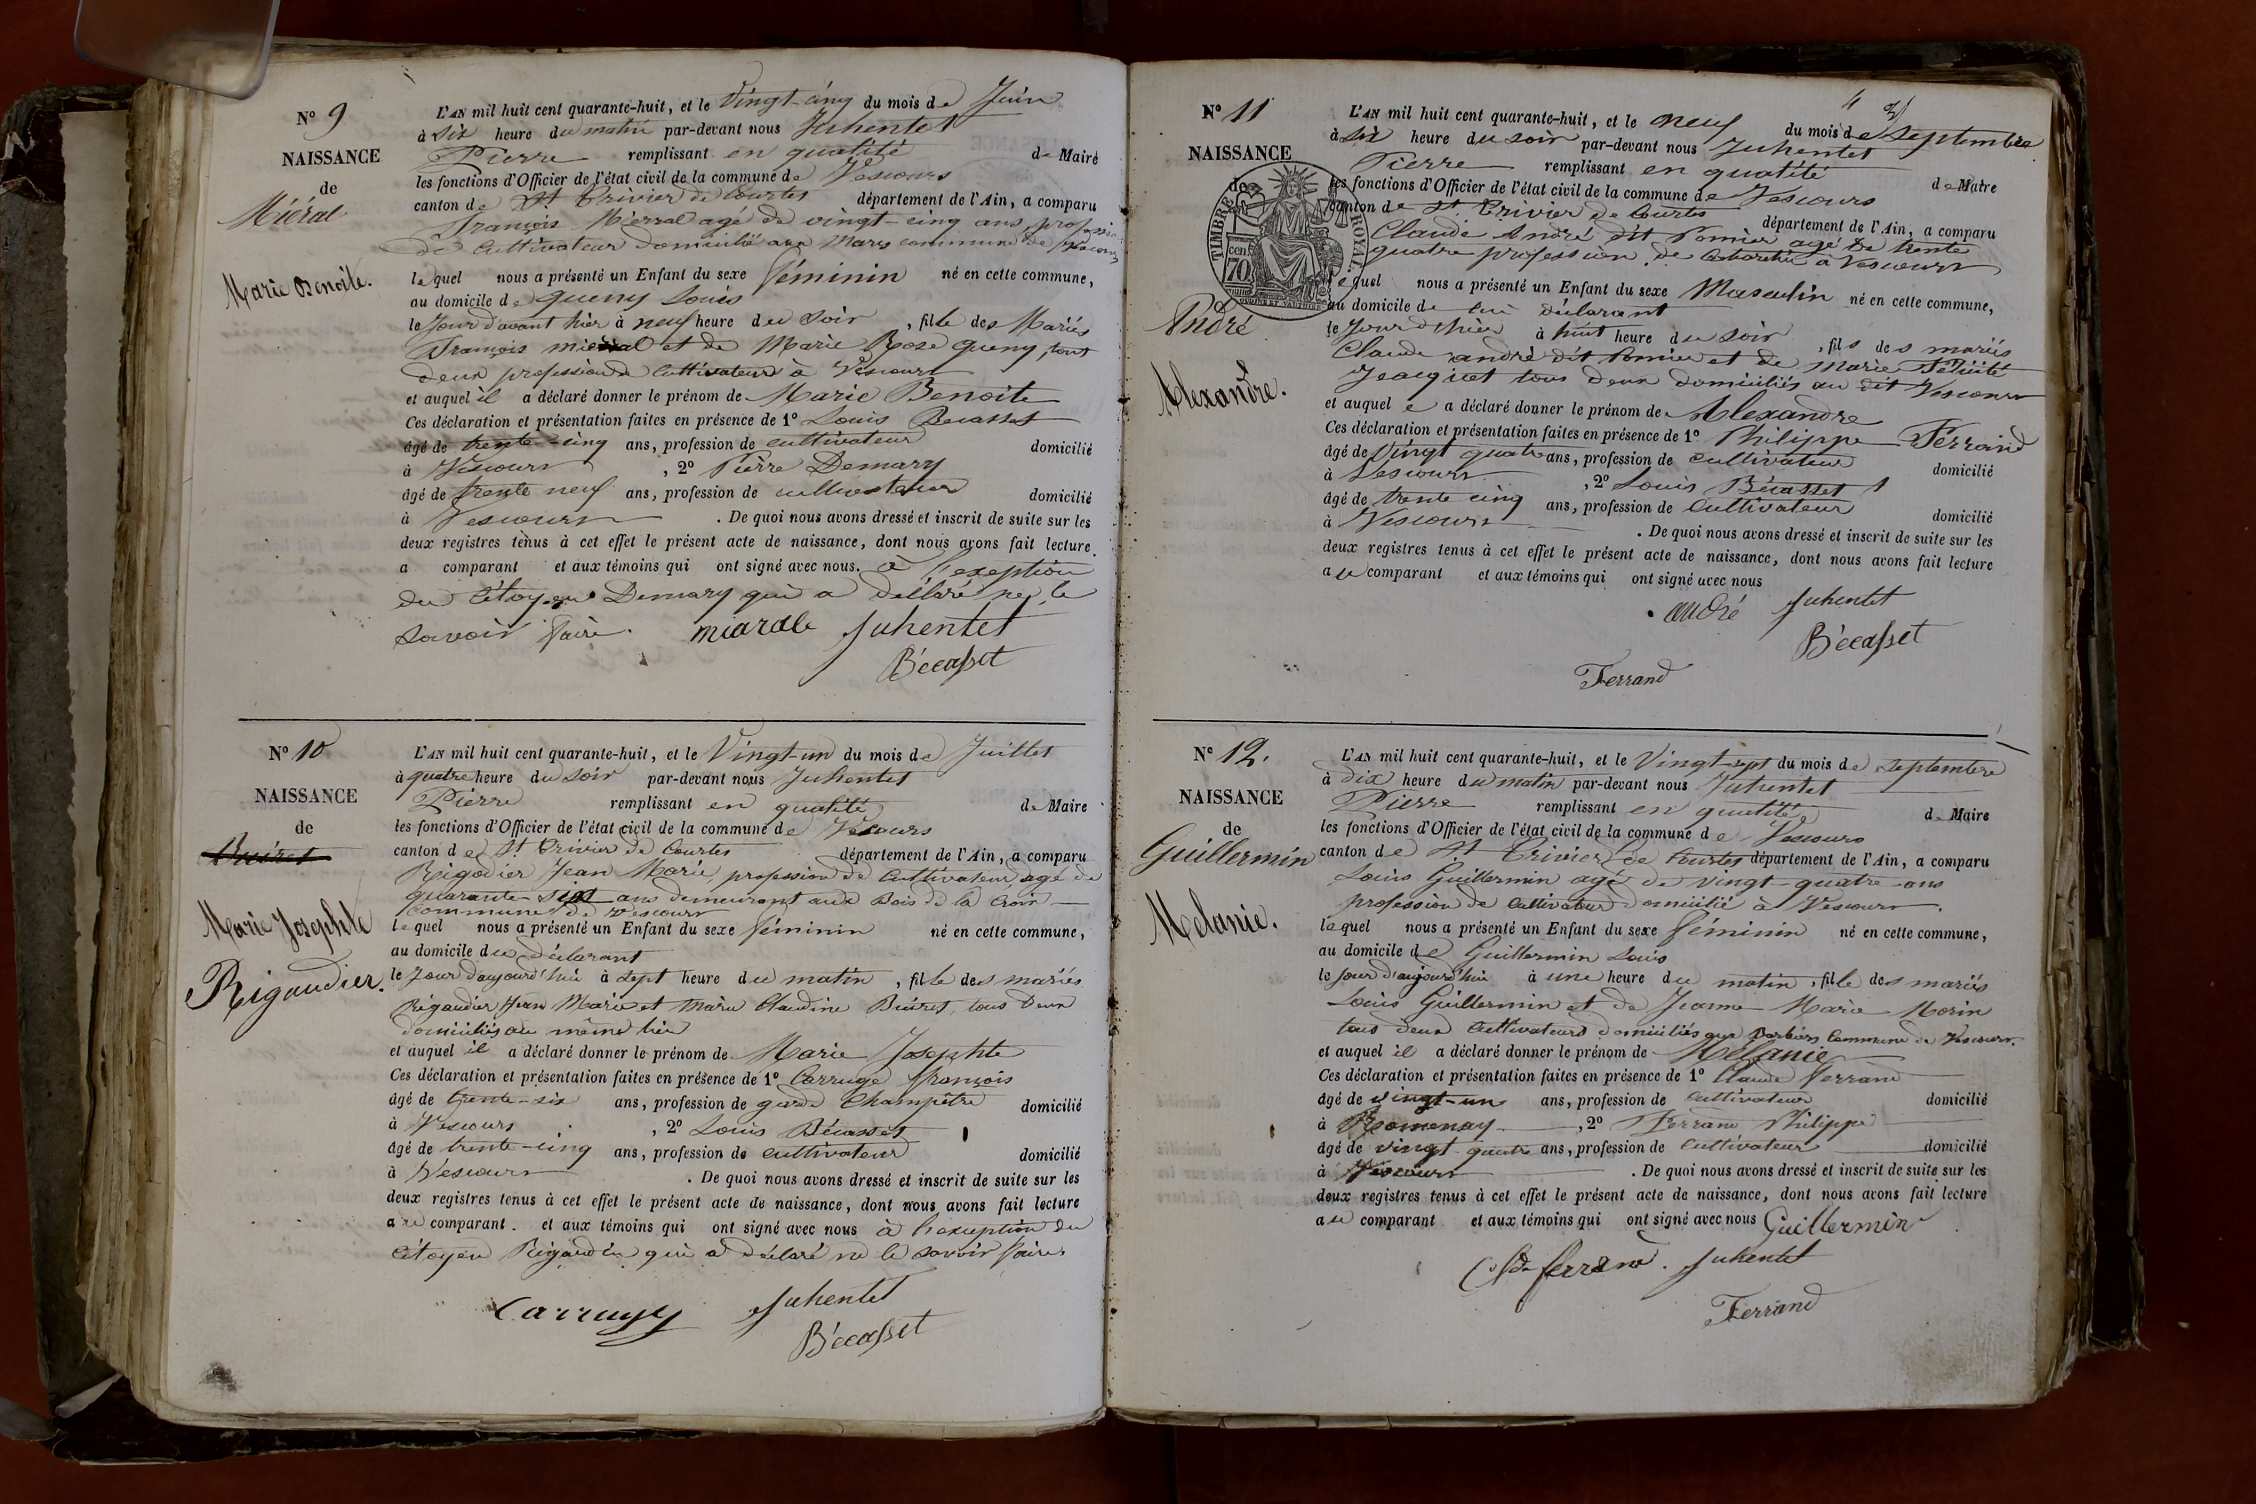 Nº 9
NAISSANCE
de
Miéral
Marie Benoite.
L'AN mil huit cent quarante-huit, et le Vingt-cinq du mois de Juin
à Six heure du matin par-devant nous Juhentet
Pierre remplissant en qualité de Maire
les fonctions d'Officier de l'état civil de la commune de Vescours
canton de St Trivier de Courtes département de l'Ain, a comparu
François Mierral agé de vingt-cinq ans, profession
de Cultivateur domicilié aux Marys commune de Vescours
lequel nous a présenté un Enfant du sexe féminin né en cette commune,
au domicile de queny Louis
le Jour d'avant hier à neuf heure du soir, fille des Mariés
François mieral et de Marie Rose queny, tout
deux profession de Cultivateurs à Vescours
et auquel il a déclaré donner le prénom de Marie Benoite
Ces déclaration et présentation faites en présence de 1º Louis Becasset
âgé de trente-cinq ans, profession de cultivateur domicilié
à Vescours, 2º Pierre Demary
âgé de trente neuf ans, profession de cultivateur domicilié
à Vescours. De quoi nous avons dressé et inscrit de suite sur les
deux registres tenus à cet effet le présent acte de naissance, dont nous avons fait lecture
a comparant et aux témoins qui ont signé avec nous. à l'exeption
du Citoyen Demary qui a déclaré ne le
savoir faire.
miarale Juhentet
Bécasset
Nº 10
NAISSANCE
de
Buiret
Marie Josephte
Rigaudier.
L'AN mil huit cent quarante-huit, et le Vingt-un du mois de Juillet
à quatre heure du soir par-devant nous Juhentet
Pierre remplissant en qualité de Maire
les fonctions d'Officier de l'état civil de la commune de Vescours
canton de St Trivier de Courtes département de l'Ain, a comparu
Rigodier Jean Marie, profession de Cultivateur, age de
quarante sept ans demeurant aux Bois de la Croix
commune de Vescours
lequel nous a présenté un Enfant du sexe féminin né en cette commune,
au domicile du déclarant
le Jour d'aujourd'hui à sept heure du matin, fille des mariés
Rigaudier Jean Marie et Marie Claudine Buiret, tous deux
domiciliés au même lieu
et auquel il a déclaré donner le prénom de Marie Josephte
Ces déclaration et présentation faites en présence de 1º Carruge françois
âgé de trente-six ans, profession de garde Champêtre domicilié
à Vescours, 2º Louis Bécasset
âgé de trente-cinq ans, profession de cultivateur domicilié
à Vescours. De quoi nous avons dressé et inscrit de suite sur les
deux registres tenus à cet effet le présent acte de naissance, dont nous avons fait lecture
au comparant. et aux témoins qui ont signé avec nous à l'exception du
Citoyen Rigaudier qui a déclaré ne le savoir faire
Carrugy Juhentet
Bécasset
Nº 11
NAISSANCE
de
TIMBRE ROYAL
70 cen
André
Alexandre.
L'AN mil huit cent quarante-huit, et le neuf du mois de Septembre
à Six heure du soir par-devant nous Juhentet
Pierre remplissant en qualité de Maire
les fonctions d'Officier de l'état civil de la commune de Vescours
canton de St. Trivier de Courtes département de l'Ain, a comparu
Claude André dit Pomier agé de trente
quatre profession de Cabaretier à Vescours
lequel nous a présenté un Enfant du sexe Masculin né en cette commune,
au domicile de lui déclarant
le Jour d'hier à huit heure du soir, fils des mariés
Claude andré dit Pomier et de Marie Félicité
Jeacquet tous deux domiciliés au dit Vescours
et auquel e a déclaré donner le prénom de Alexandre
Ces déclaration et présentation faites en présence de 1º Philippe Ferrand
âgé de Vingt quatre ans, profession de cultivateur domicilié
à Vescours, 2º Louis Bécasset
âgé de trente cinq ans, profession de Cultivateur domicilié
à Vescours. De quoi nous avons dressé et inscrit de suite sur les
deux registres tenus à cet effet le présent acte de naissance, dont nous avons fait lecture
au comparant et aux témoins qui ont signé avec nous
André Juhentet
Bécasset
Ferrand
Nº 12.
NAISSANCE
de
Guillermin
Melanie.
L'AN mil huit cent quarante-huit, et le Vingt-sept du mois de Septembre
à Dix heure du matin par-devant nous Juhentet
Pierre remplissant en qualité de Maire
les fonctions d'Officier de l'état civil de la commune de Vescours
canton de St Trivier de Courtes département de l'Ain, a comparu
Louis Guillermin agé de vingt-quatre ans
profession de Cultivateur domicilié à Vescours.
lequel nous a présenté un Enfant du sexe féminin né en cette commune,
au domicile de Guillermin Louis
le Jour d'aujourd'hui à une heure du matin, fille des mariés
Louis Guillermin et de Jeanne Marie Morin
tous deux Cultivateurs domiciliés aux Commune de Vescours.
et auquel il a déclaré donner le prénom de Mélanie
Ces déclaration et présentation faites en présence de 1º Claude Ferrand
âgé de vingt-un ans, profession de Cultivateur domicilié
à Romenay, 2º Ferrand Philippe
âgé de vingt quatre ans, profession de Cultivateur domicilié
à Vescours. De quoi nous avons dressé et inscrit de suite sur les
deux registres tenus à cet effet le présent acte de naissance, dont nous avons fait lecture
au comparant et aux témoins qui ont signé avec nous Guillermin
Clde ferrand. Juhentet
Ferrand